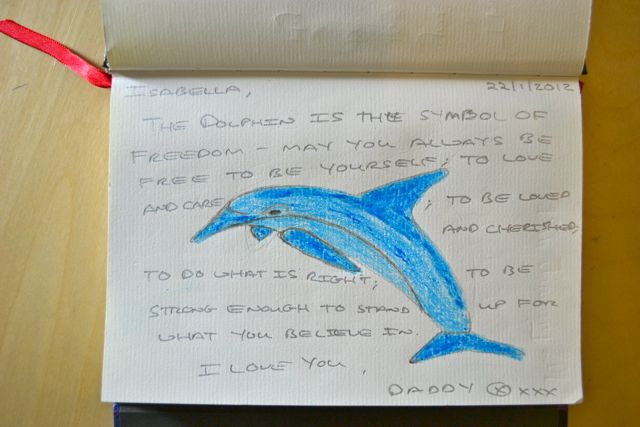 ISABELLA,
22/1/2012
THE DOLPHIN IS THE SYMBOL OF
FREEDOM – MAY YOU ALWAYS BE
FREE TO BE YOURSELF; TO LOVE
AND CARE ; TO BE LOVED
AND CHERISHED;
TO DO WHAT IS RIGHT; TO BE
STRONG ENOUGH TO STAND UP FOR
WHAT YOU BELIEVE IN.
I LOVE YOU,
DADDY ⓧ xxx